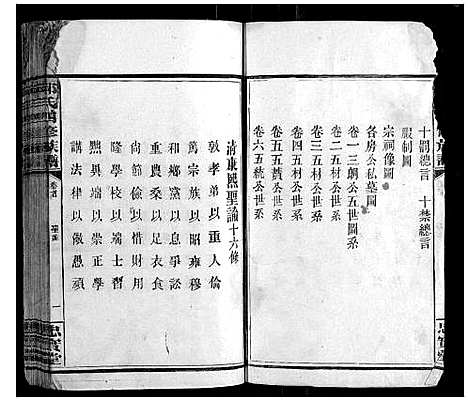 十罰總言 十禁總言
服制圖
宗祠像圖
各房公私墓圖
卷一三朗公五世圖
卷二五材公世系
卷三五村公世系
卷四五材公世系
卷五五公世系
卷六五秡公世系
清康熙聖諭十六條
敦孝弟以重人倫
篤宗族以昭雍穆
和鄉黨以息爭訟
重農桑以足衣食
尚節儉以惜財用
隆學校以端士習
黜異端以崇正學
講法律以儆愚頑
氏首修族譜
卷首
一
忠實堂